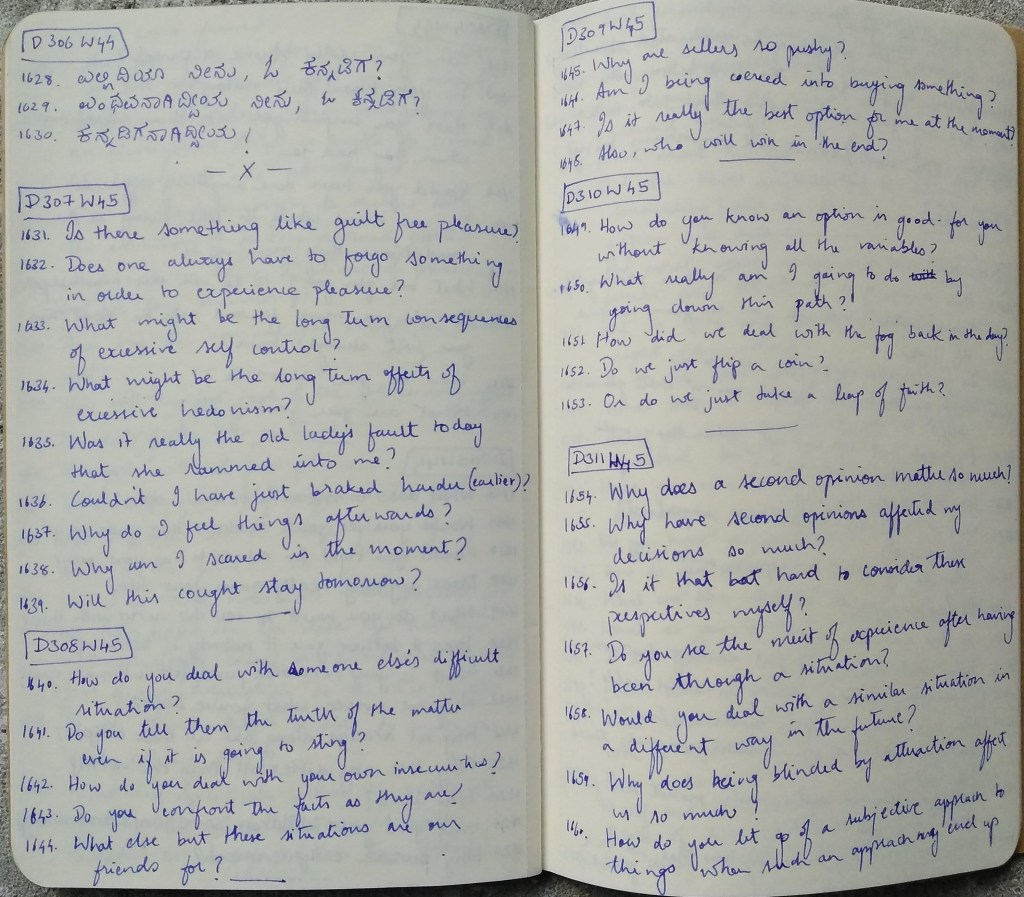 D306W44
1628. ಎಲ್ಲಿದಿಯಾ ನೀನು, ಓ ಕನ್ನಡಿಗ?
1629. ಎಂಥವನಾಗಿದ್ದೀಯ ನೀನು, ಓ ಕನ್ನಡಿಗ?
1630. ಕನ್ನಡಿಗನಾಗಿದ್ದೀಯ!
— X —
D307W45
1631. Is there something like guilt free pleasure?
1632. Does one always have to forgo something
in order to experience pleasure?
1633. What might be the long term consequences
of excessive self control?
1634. What might be the long term effects of
excessive hedonism?
1635. Was it really the old lady's fault today
that she rammed into me?
1636. Couldn't I have just braked harder (earlier)?
1637. Why do I feel things afterwards?
1638. Why am I scared in the moment?
1639. Will this cought stay tomorrow?
D308W45
1640. How do you deal with someone else's difficult
situation?
1641. Do you tell them the truth of the matter
even if it is going to sting?
1642. How do you deal with your own insecurities?
1643. Do you confront the facts as they are?
1644. What else but these situations are our
friends for?
D309W45
1645. Why are sellers so pushy?
1646. Am I being coerced into buying something?
1647. Is it really the best option for me at the moment?
1648. Also, who will win in the end?
D310W45
1649. How do you know an option is good for you
without knowing all the variables?
1650. What really am I going to do by
going down this path?
1651. How did we deal with the fog back in the day?
1652. Do we just flip a coin?
1653. Or do we just take a leap of faith?
D311W45
1654. Why does a second opinion matter so much?
1655. Why have second opinions affected my
decisions so much?
1656. Is it that hard to consider these
perspectives myself?
1657. Do you see the merit of experience after having
been through a situation?
1658. Would you deal with a similar situation in
a different way in the future?
1659. Why does being blinded by attraction affect
us so much?
1660. How do you let go of a subjective approach to
things when such an approach may end up